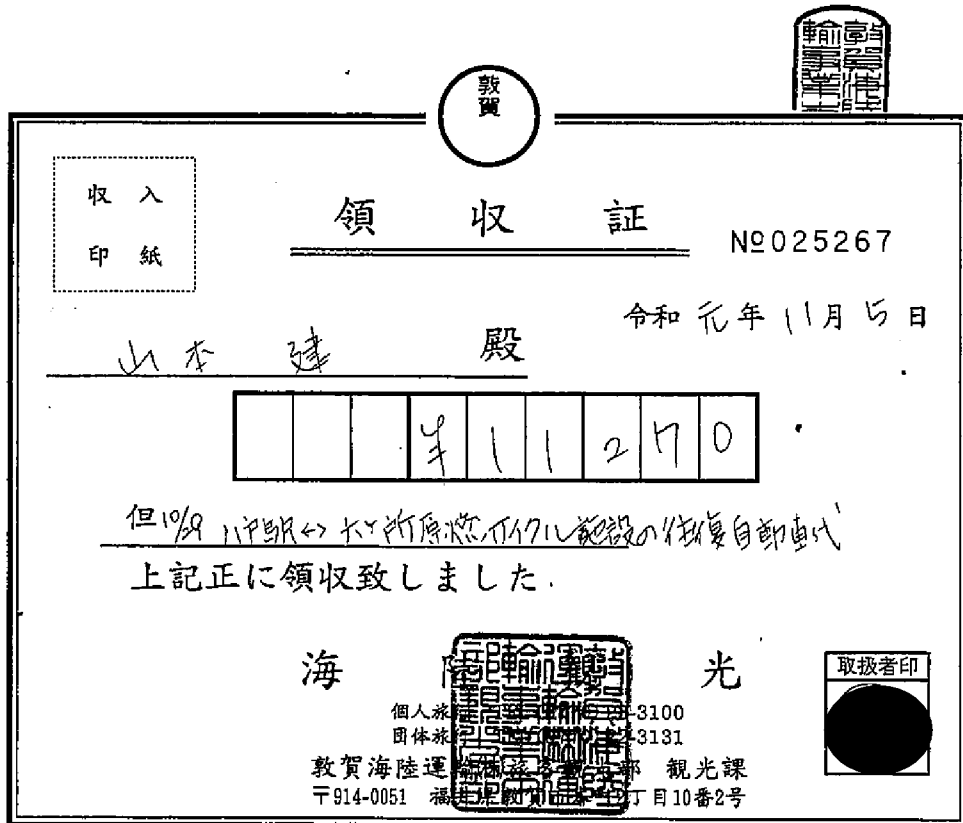 敦賀
収入
印紙
領収証
№025267
令和元年11月5日
山本 建 殿
¥11270
但10/29 八戸駅↔六ヶ所原燃サイクル施設の往復自動車代
上記正に領収致しました.
海 陸 光
取扱者印
個人旅 -3100
団体旅 -3131
敦賀海陸運輸 部 観光課
〒914-0051 福井県敦賀市 丁目10番2号